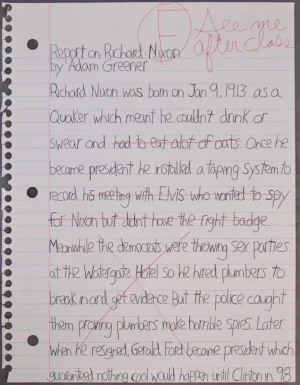 F See me
after class
Report on Richard Nixon
by Adam Greener
Richard Nixon was born on Jan 9, 1913 as a
Quaker which meant he couldn't drink or
swear and had to eat alot of oats. Once he
became president he installed a taping system to
record his meeting with Elvis who wanted to spy
for Nixon but didn't have the right badge.
Meanwhile the democrats were throwing sex parties
at the Watergate Hotel so he hired plumbers to
break in and get evidence. But the police caught
them proving plumbers make horrible spies. Later
when he resigned, Gerald Ford became president which
guaranteed nothing cool would happen until Clinton in '98.